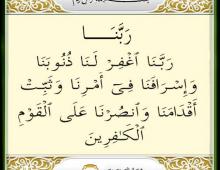 رَبَّنَــا
رَبَّنَا ٱغْفِرْ لَنَا ذُنُوبَنَا
وَإِسْرَافَنَا فِىٓ أَمْرِنَا وَثَبِّتْ
أَقْدَامَنَا وَٱنصُرْنَا عَلَى ٱلْقَوْمِ
ٱلْكَـٰفِرِينَ